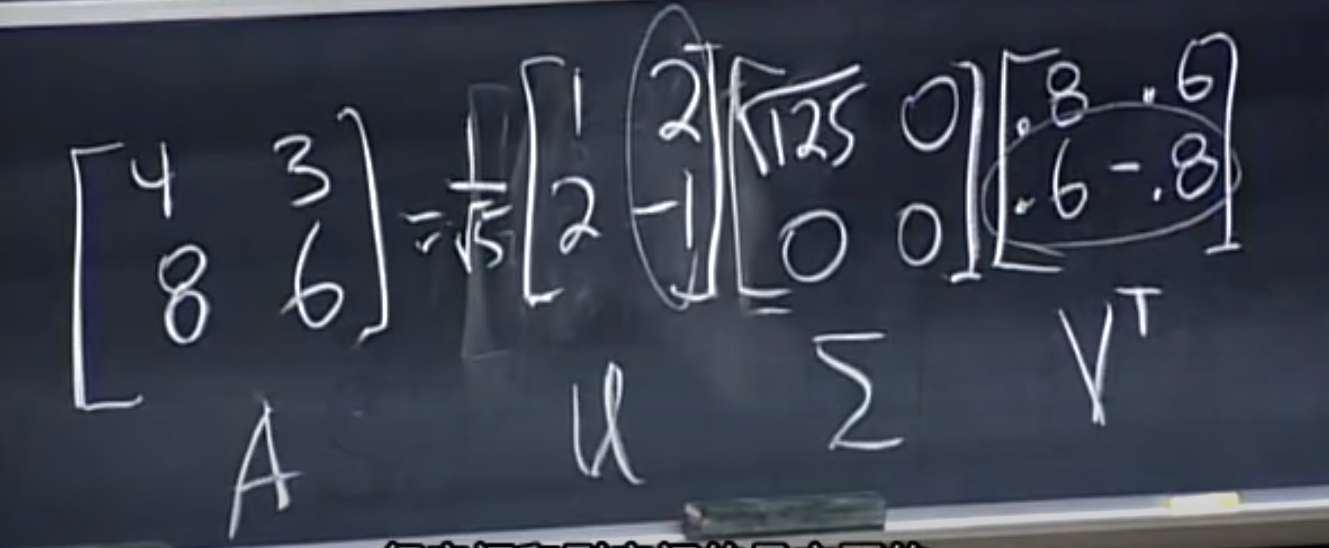 [4 3; 8 6] = 1/√5 [1 2; 2 -1] [√125 0; 0 0] [.8 .6; .6 -.8]
A U Σ Vᵀ